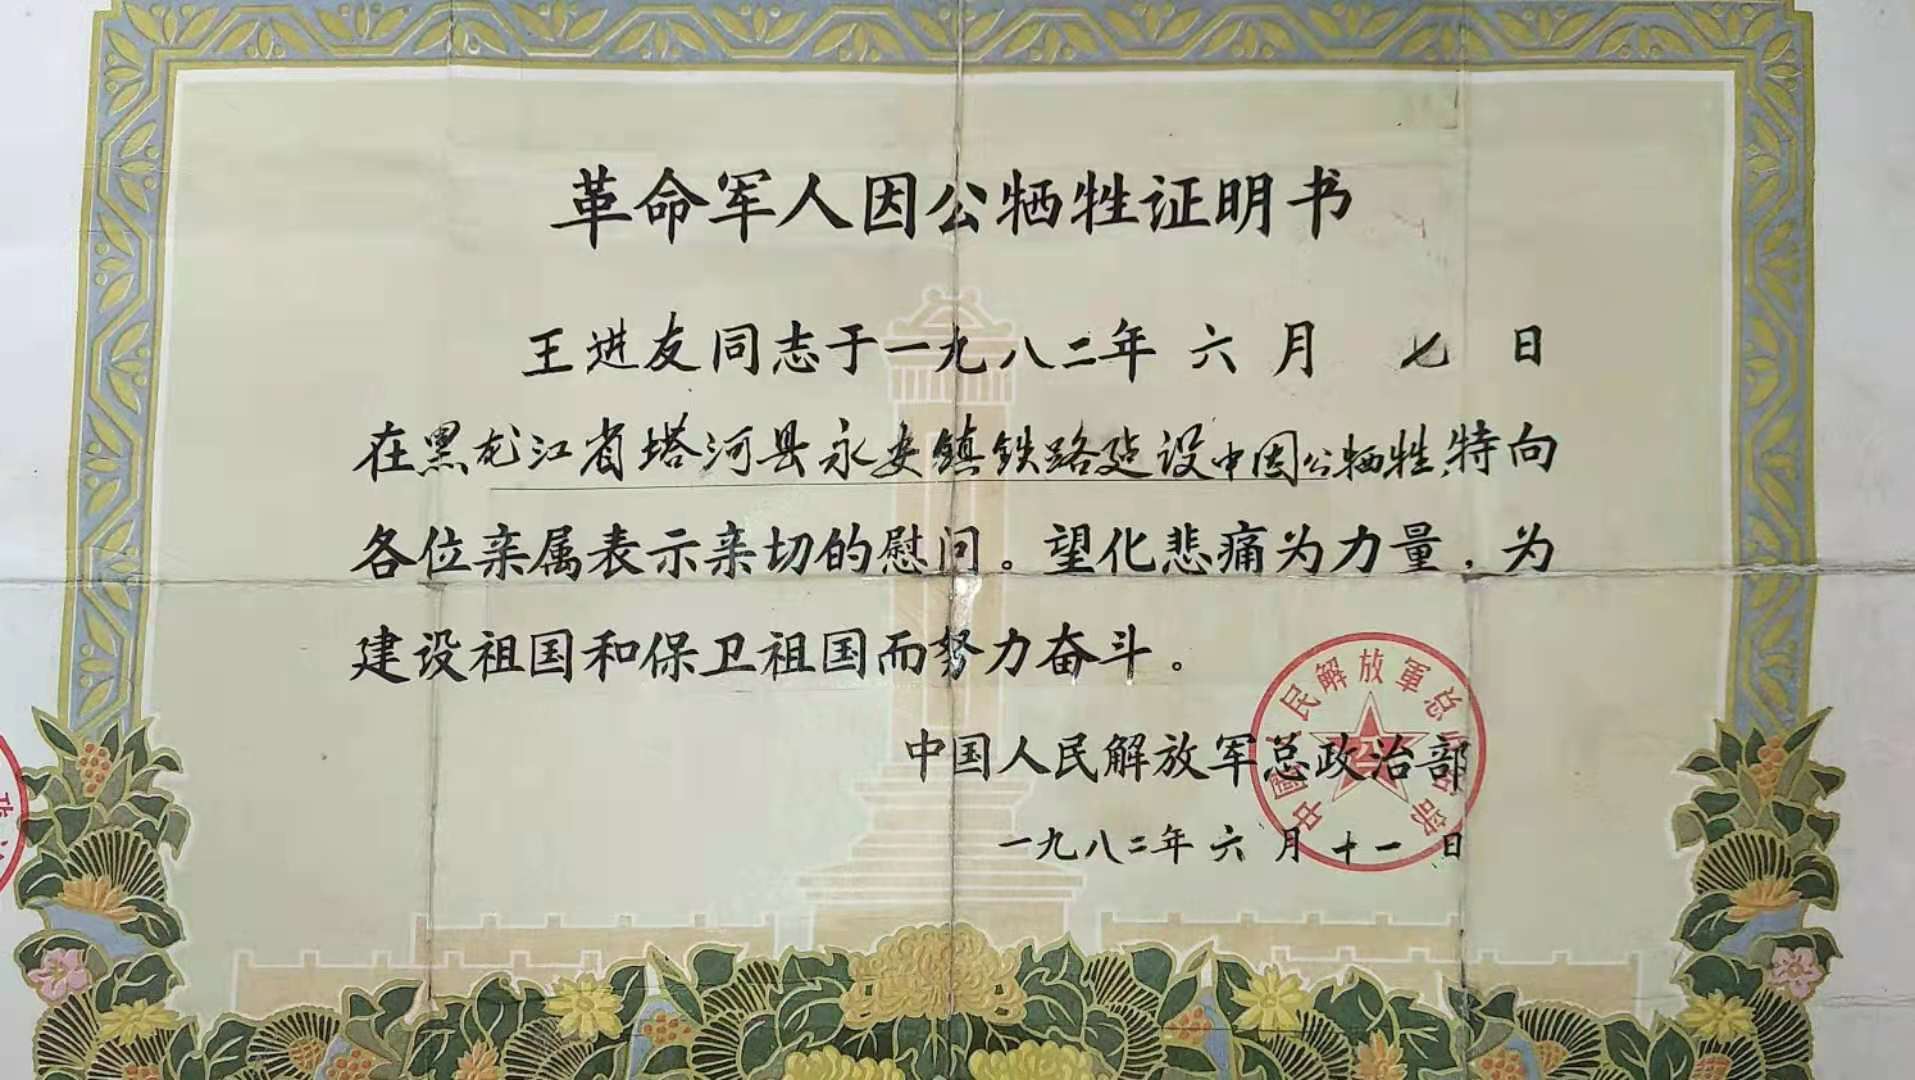 革命军人因公牺牲证明书
王进友同志于一九八二年 六 月 七 日
在黑龙江省塔河县永安镇铁路建设中因公牺牲,特向
各位亲属表示亲切的慰问。望化悲痛为力量,为
建设祖国和保卫祖国而努力奋斗。
中国人民解放军总政治部
一九八二年 六 月 十一 日
中國人民解放軍总政治部